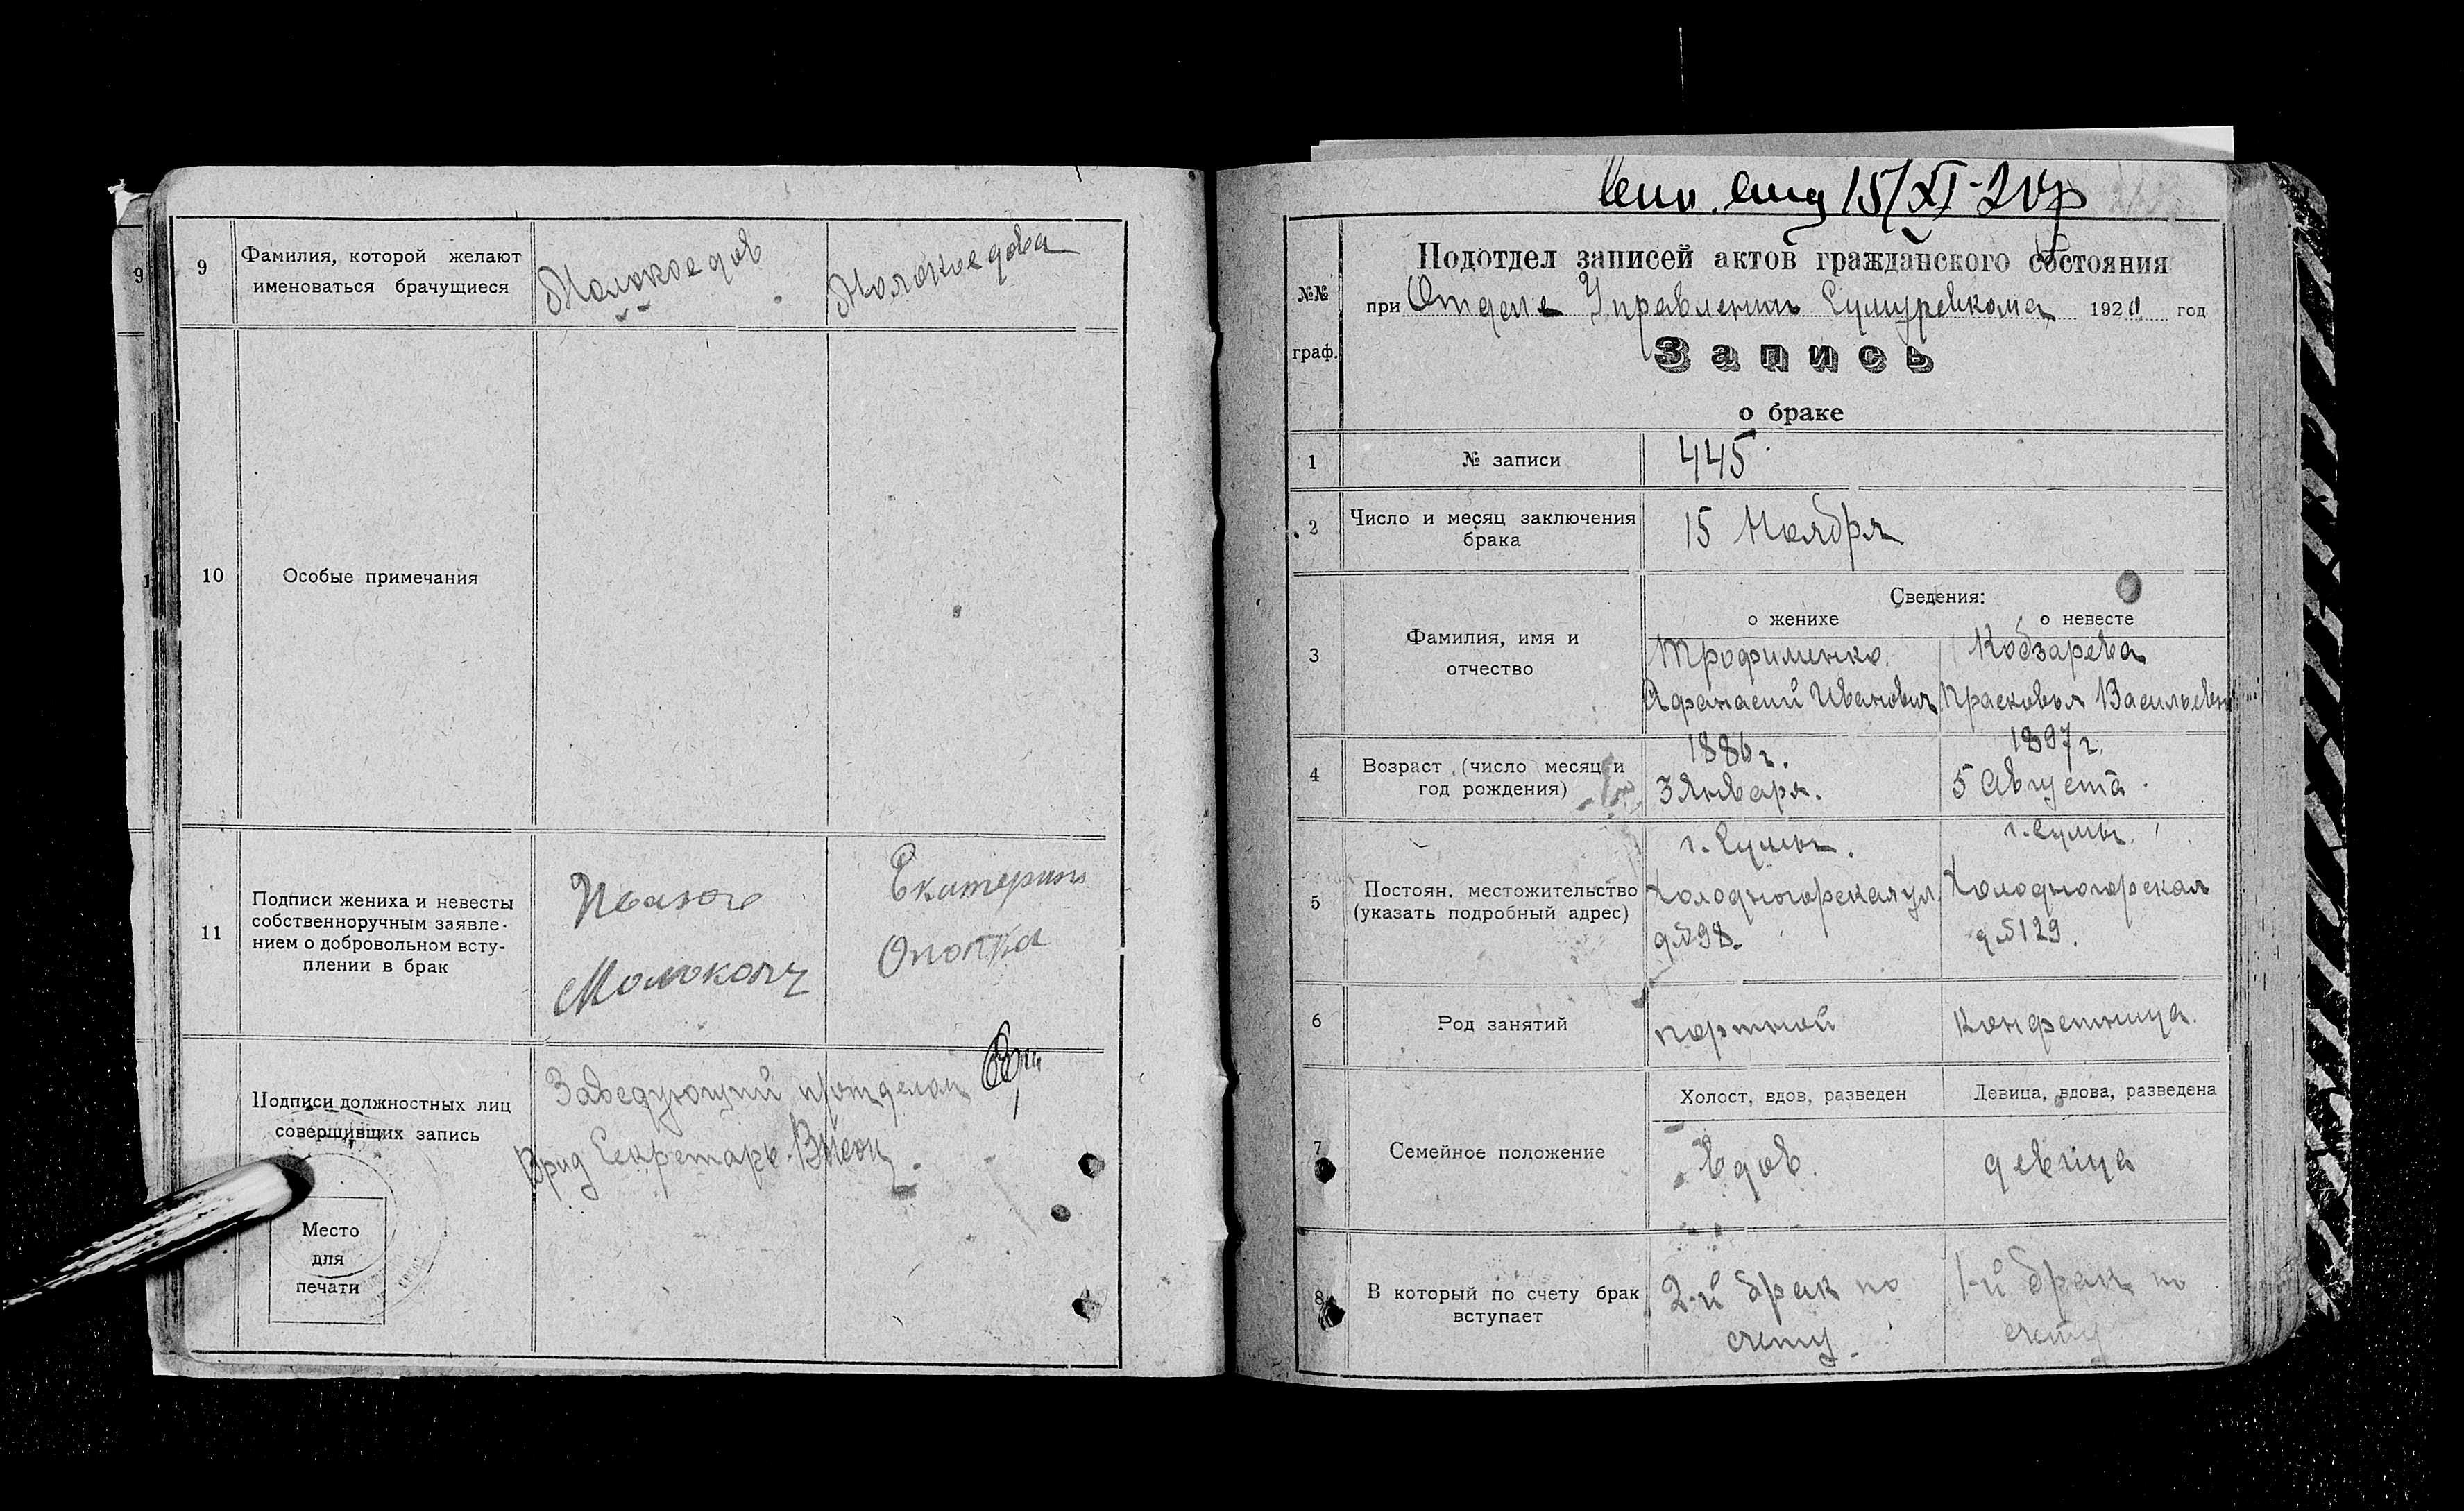 9
9
Фамилия, которой желают
именоваться брачущиеся
Молокоедов
Молокоедова
10
Особые примечания
11
Подписи жениха и невесты
собственноручным заявле-
нием о добровольном всту-
плении в брак
Екатерина
Подписи должностных лиц
совершивших запись
Заведующий п/отделом
Врид Секретарь
Место
для
печати
15/XI-20г
№№
граф.
Подотдел записей актов гражданского состояния
при Отделе Управления Сумуревкома 1920 год
Запись
о браке
1
№ записи
445
2
Число и месяц заключения
брака
15 Ноября
Сведения:
о женихе
о невесте
3
Фамилия, имя и
отчество
Трофименко
Афанасий Иванович
Кобзарева
Прасковья Васильевн
4
Возраст (число месяц и
год рождения)
1886 г.
3 Января.
1897 г.
5 Августа.
5
Постоян. местожительство
(указать подробный адрес)
г. Сумы.
Холодногорская ул.
д № 98.
г. Сумы.
Холодногорская
д № 129.
6
Род занятий
портной
Конфетница.
7
Семейное положение
Холост, вдов, разведен
Девица, вдова, разведена
вдов.
девица
8
В который по счету брак
вступает
2-й брак по
счету.
1-й брак по
счету